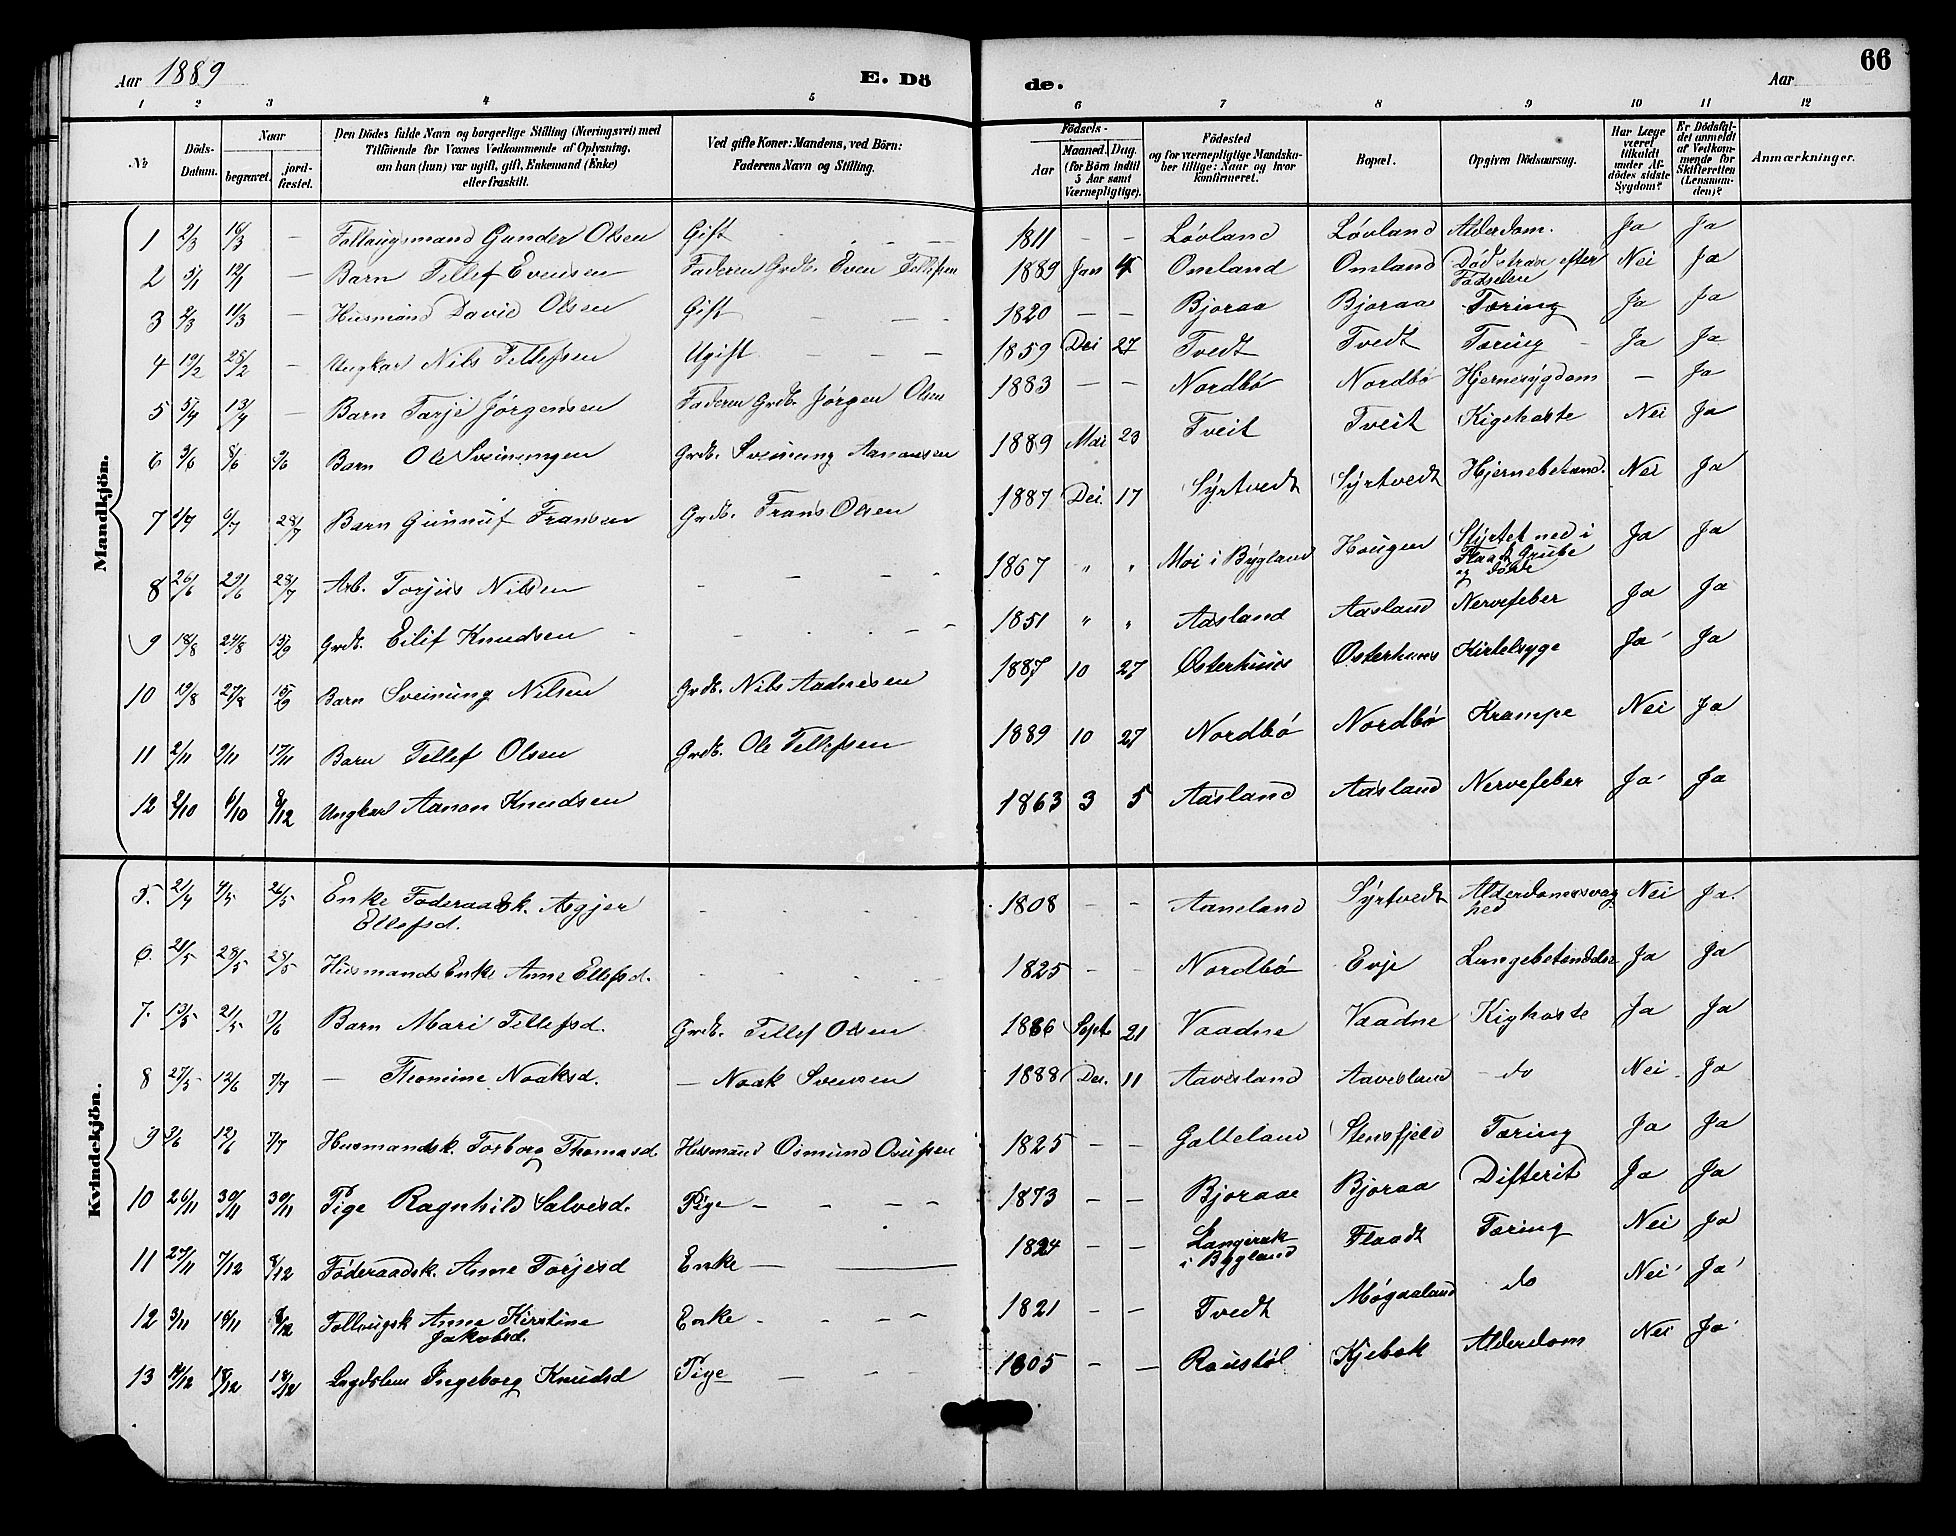 Aar 1889
E. Dö
de.
Aar
66
1 2 3 4 5 6 7 8 9 10 11 12
No
Döds-Datum.
Naar
begravet.
jord-fæstet.
Den Dödes fulde Navn og borgerlige Stilling (Næringsvei) med
Tilföiende for Voxnes Vedkommende af Oplysning,
om han (hun) var ugift, gift, Enkemand (Enke)
eller fraskilt.
Ved gifte Koner: Mandens, ved Börn:
Faderens Navn og Stilling.
Födsels-
Aar
Maaned. Dag.
(for Börn indtil
5 Aar samt
Værnepligtige).
Födested
og for værnepligtige Mandska-
ber tillige: Naar og hvor
konfirmeret.
Bopæl.
Opgiven Dödsaarsag.
Har Læge
været
tilkaldt
under Af-
dödes sidste
Sygdom?
Er Dödsfal-
det anmeldt
af Vedkom-
mende for
Skifteretten
(Lensman-
den)?
Anmærkninger.
Mandkjön.
1 2/3 18/3 — Follaugsmand Gunder Olsen Gift 1811 — — Løvland Løvland Alderdom. Ja Ja
2 5/1 12/1 — Barn Tellef Evensen Faderen Grdb. Even Tellefsen 1889 Jan 4 Omland Omland Død strax efter Fødselen Nei Ja
3 2/3 11/3 — Husmand David Olsen Gift 1820 — — Bjoraa Bjoraa Tæring Ja Ja
4 19/2 28/2 — Ungkar Nils Tellefsen Ugift 1859 Dei 27 Tvedt Tvedt Tæring Ja Ja
5 5/4 13/4 — Barn Tarje Jørgensen Faderen Grdb. Jørgen Olsen 1883 — — Nordbø Nordbø Hjernesygdom — Ja
6 3/6 8/6 9/6 Barn Ole Sveinungen Grdb. Sveinung Aanonsen 1889 Mai 23 Tveit Tveit Kigehoste Nei Ja
7 1/7 6/7 28/7 Barn Gunnuf Fransen Grdb. Frans Olsen 1887 Dei. 17 Syrtvedt Syrtvedt Hjernebetænd. Nei Ja
8 26/6 29/6 28/7 Arb. Torjus Nilsen 1867 " " Moi i Bygland Hougen Styrtet ned i Flaadt Grube og døde Ja Ja
9 18/8 24/8 15/9 Grdb. Eilif Knudsen 1851 " " Aasland Aasland Nervefeber Ja Ja
10 19/8 27/8 15/9 Barn Sveinung Nilsen Grdb. Nils Aadnesen 1887 10 27 Østerhus Østerhus Kirtelsyge Ja Ja
11 2/11 9/11 17/11 Barn Tellef Olsen Grdb. Ole Tellefsen 1889 10 27 Nordbø Nordbø Krampe Nei Ja
12 2/10 6/10 8/12 Ungkar Aanon Knudsen 1863 3 5 Aasland Aasland Nervefeber Ja Ja
Kvindekjön.
5. 21/4 4/5 26/5 Enke Føderaadsk. Asgjer Ellefsd. 1808 — — Aaneland Syrtvedt Alderdomssvaghed Nei Ja.
6. 21/5 28/5 28/5 Husmands Enke Anne Ellefsd. 1825 — — Nordbø Evje Lungebetændelse Ja Ja
7. 13/5 21/5 9/6 Barn Mari Tellefsd. Grdb. Tellef Olsen 1886 Sept. 21 Vaadne Vaadne Kighoste Ja Ja
8 27/5 12/6 7/7 — Thomine Noaksd. — Noak Svensen 1888 Des. 11 Aavesland Aavesland do Nei Ja
9 3/6 12/6 7/7 Husmandsk. Torborg Thomasd. Husmand Osmund Osufsen 1825 — — Galteland Stensfjeld Tæring Ja Ja
10 26/11 30/11 30/11 Pige Ragnhild Salvesd. Pige — 1873 — — Bjoraae Bjoraa Difterit Ja Ja
11 27/11 7/12 8/12 Føderaadsk. Anne Torjesd Enke — 1824 — — Langerak i Bygland Flaadt Tæring Nei Ja
12 3/11 18/11 8/12 Follaugsk Anne Kirstine Jakobsd. Enke — 1821 — — Tvedt Møgaaland do Nei Ja
13 14/12 18/12 18/12 Lægdslem Ingeborg Knudsd Pige 1805 — — Roustøl Kjebek Alderdom Nei Ja